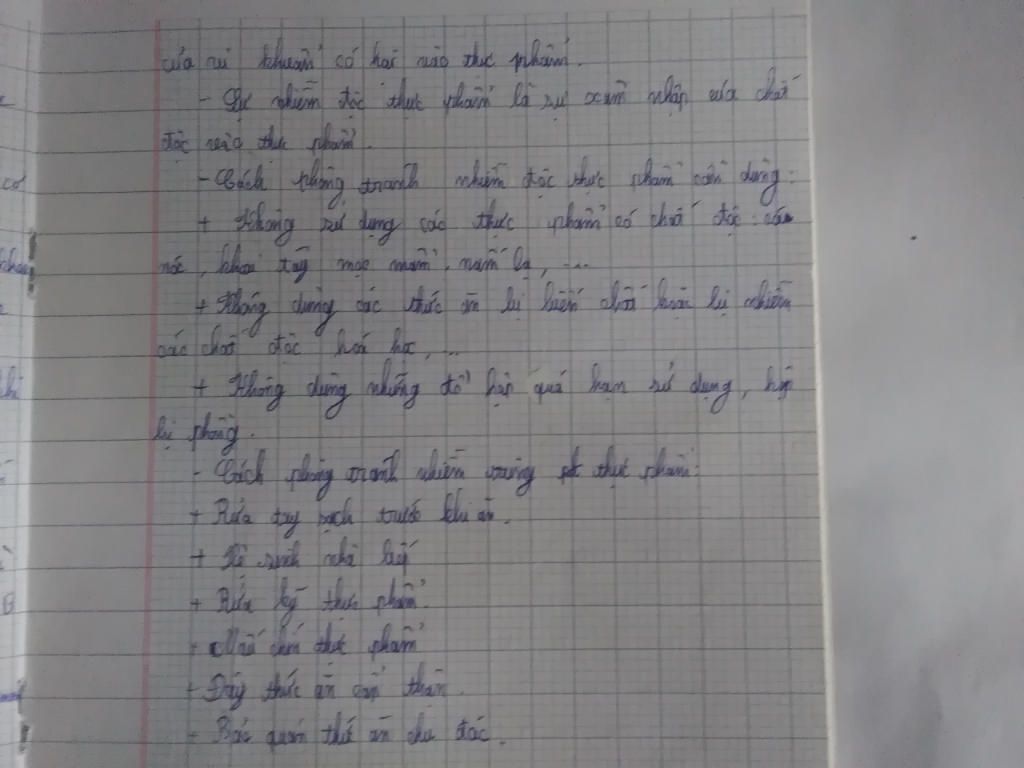 của vi khuẩn có hại vào thực phẩm.
- Sự nhiễm độc thực phẩm là sự xâm nhập của chất
độc vào thực phẩm.
- Cách phòng tránh nhiễm độc thực phẩm cần dùng:
+ Không sử dụng các thực phẩm có chất độc: cá
nóc, khoai tây mọc mầm, nấm lạ, ...
+ Không dùng các thức ăn bị biến chất hoặc bị nhiễm
các chất độc hoá học, ...
+ Không dùng những đồ hộp quá hạn sử dụng, hộp
bị phồng.
- Cách phòng tránh nhiễm trùng thực phẩm:
+ Rửa tay sạch trước khi ăn.
+ Vệ sinh nhà bếp
+ Rửa kỹ thực phẩm.
+ Nấu chín thực phẩm
+ Đậy thức ăn cẩn thận.
+ Bảo quản thức ăn chu đáo.